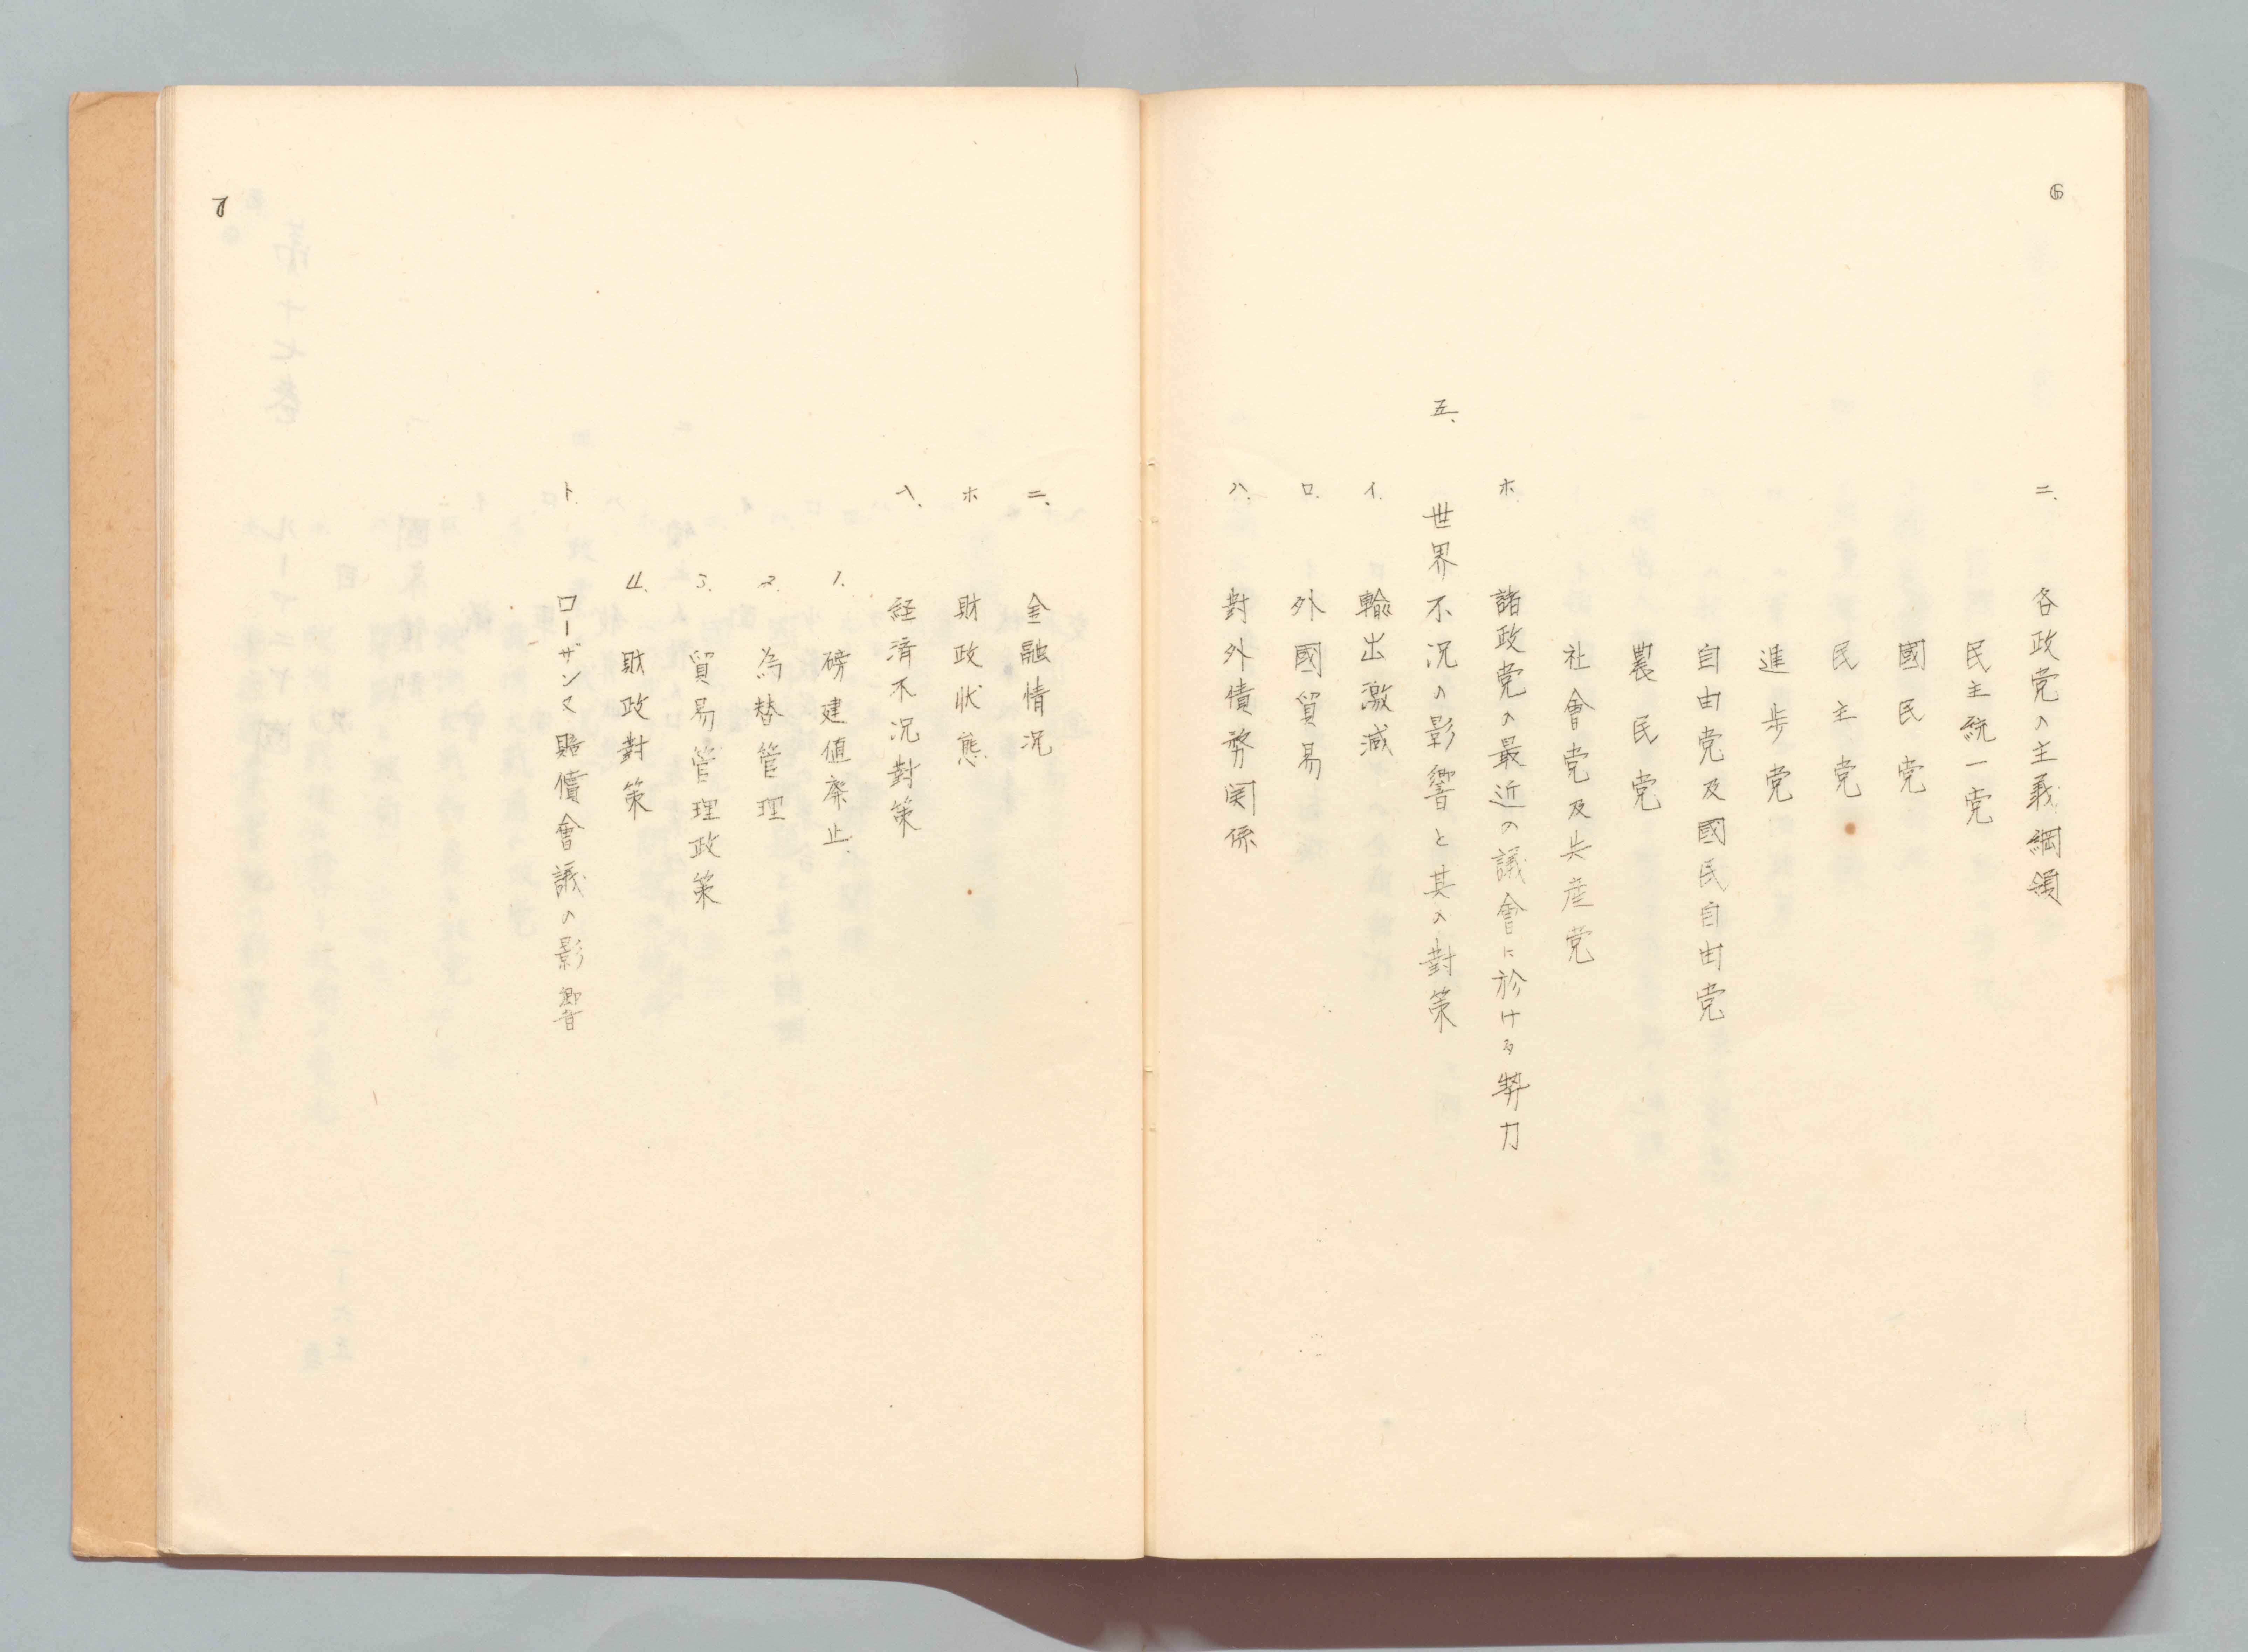 6
ニ、各政党の主義綱領
民主統一党
國民党
民主党
進歩党
自由党及國民自由党
農民党
社會党及共産党
ホ、諸政党の最近の議會に於ける勢力
五、世界不況の影響と其の對策
イ、輸出激減
ロ、外國貿易
ハ、對外債務関係
ニ、金融情況
ホ、財政状態
ヘ、経済不況對策
1. 磅建値廃止
2. 為替管理
3. 貿易管理政策
4. 財政對策
ト、ローザンヌ賠償會議の影響
7